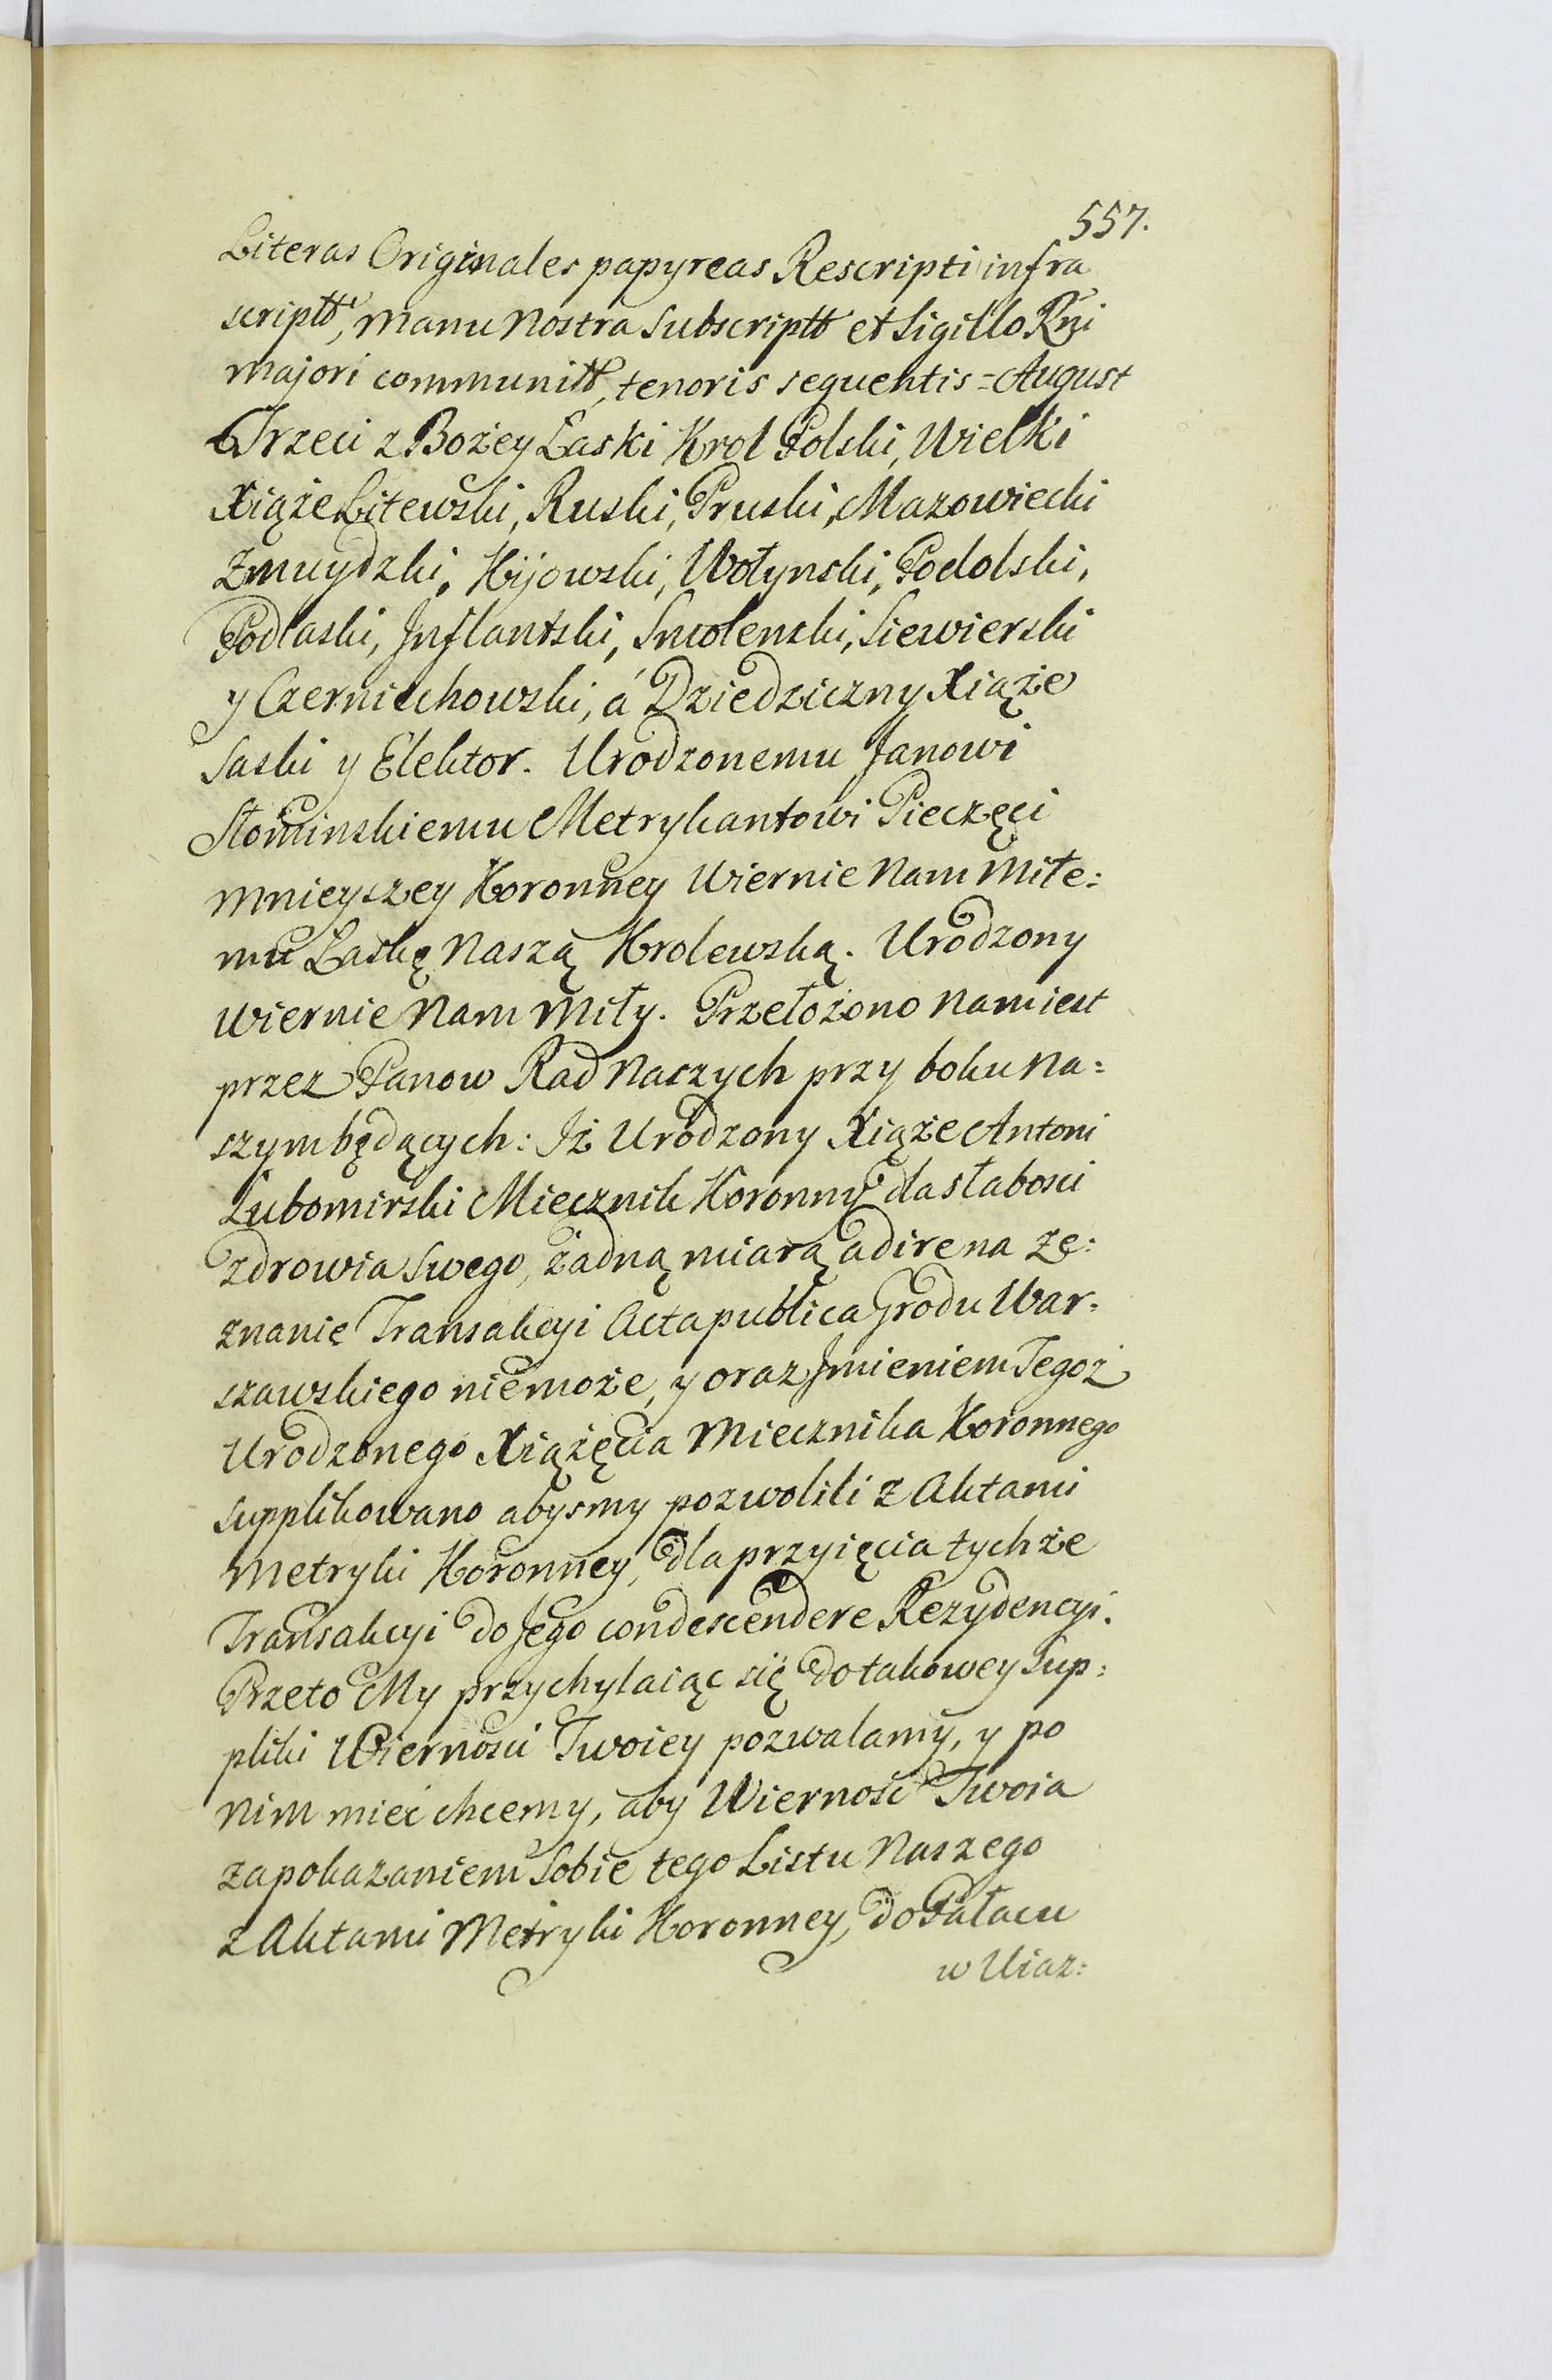 557.
Literas Originales papyreas Rescripti infra
scriptt, manu Nostra Subscriptt et Sigillo Rñi
majori communitt, tenoris sequentis = August
Trzeci z Bożey Łaski Krol Polski, Wielki
Xiąże Litewski, Ruski, Pruski, Mazowiecki
Zmuydzki, Kijowski, Wołynski, Podolski,
Podlaski, Jnflantski, Smolenski, Siewierski
y Czerniechowski, á Dziedziczny Xiąże
Saski y Elektor. Urodzonemu Janowi
Słominskiemu Metrykantowi Pieczęci
Mnieyszey Koronney Wiernie Nam Miłe:
mu Łaskę Naszą Krolewską. Urodzony
Wiernie Nam Miły. Przełożono Nam iest
przez Panow Rad Naszych przy boku Na:
szym będących: Jż Urodzony Xiąże Antoni
Lubomirski Miecznik Koronny dla słabosci
zdrowia Swego, żadną miarą adire na ze:
znanie Transakcyi Acta publica Grodu War:
szawskiego niemoże, y oraz Jmieniem Tegoż
Urodzonego Xiążęcia Miecznika Koronnego
supplikowano abysmy pozwolili z Aktami
Metryki Koronney, dla przyięcia tychże
Transakcyi do Jego condescendere Rezydencyi.
Przeto My przychylaiąc się do takowey Sup:
pliki Wiernosci Twoiey pozwalamy, y po
nim mieć chcemy, aby Wierność Twoia
za pokazaniem Sobie tego Listu Naszego
z Aktami Metryki Koronney, do Pałacu
w Uiaz: